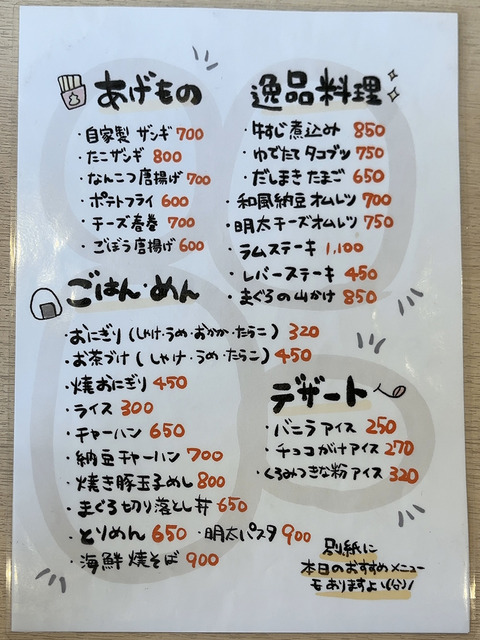 あげもの
・自家製 ザンギ 700
・たこザンギ 800
・なんこつ唐揚げ 700
・ポテトフライ 600
・チーズ春巻 700
・ごぼう唐揚げ 600
逸品料理
・牛すじ煮込み 850
・ゆでたてタコブツ 750
・だしまきたまご 650
・和風納豆オムレツ 700
・明太チーズオムレツ 750
・ラムステーキ 1,100
・レバーステーキ 450
・まぐろの山かけ 850
ごはん・めん
・おにぎり(しゃけ・うめ・おかか・たらこ) 320
・お茶づけ(しゃけ・うめ・たらこ) 450
・焼おにぎり 450
・ライス 300
・チャーハン 650
・納豆チャーハン 700
・焼き豚玉子めし 800
・まぐろ切り落とし丼 650
・とりめん 650 ・明太パスタ 900
・海鮮焼そば 900
デザート
・バニラアイス 250
・チョコがけアイス 270
・くるみつきな粉アイス 320
別紙に
本日のおすすめメニュー
もありますよ\(^^)/